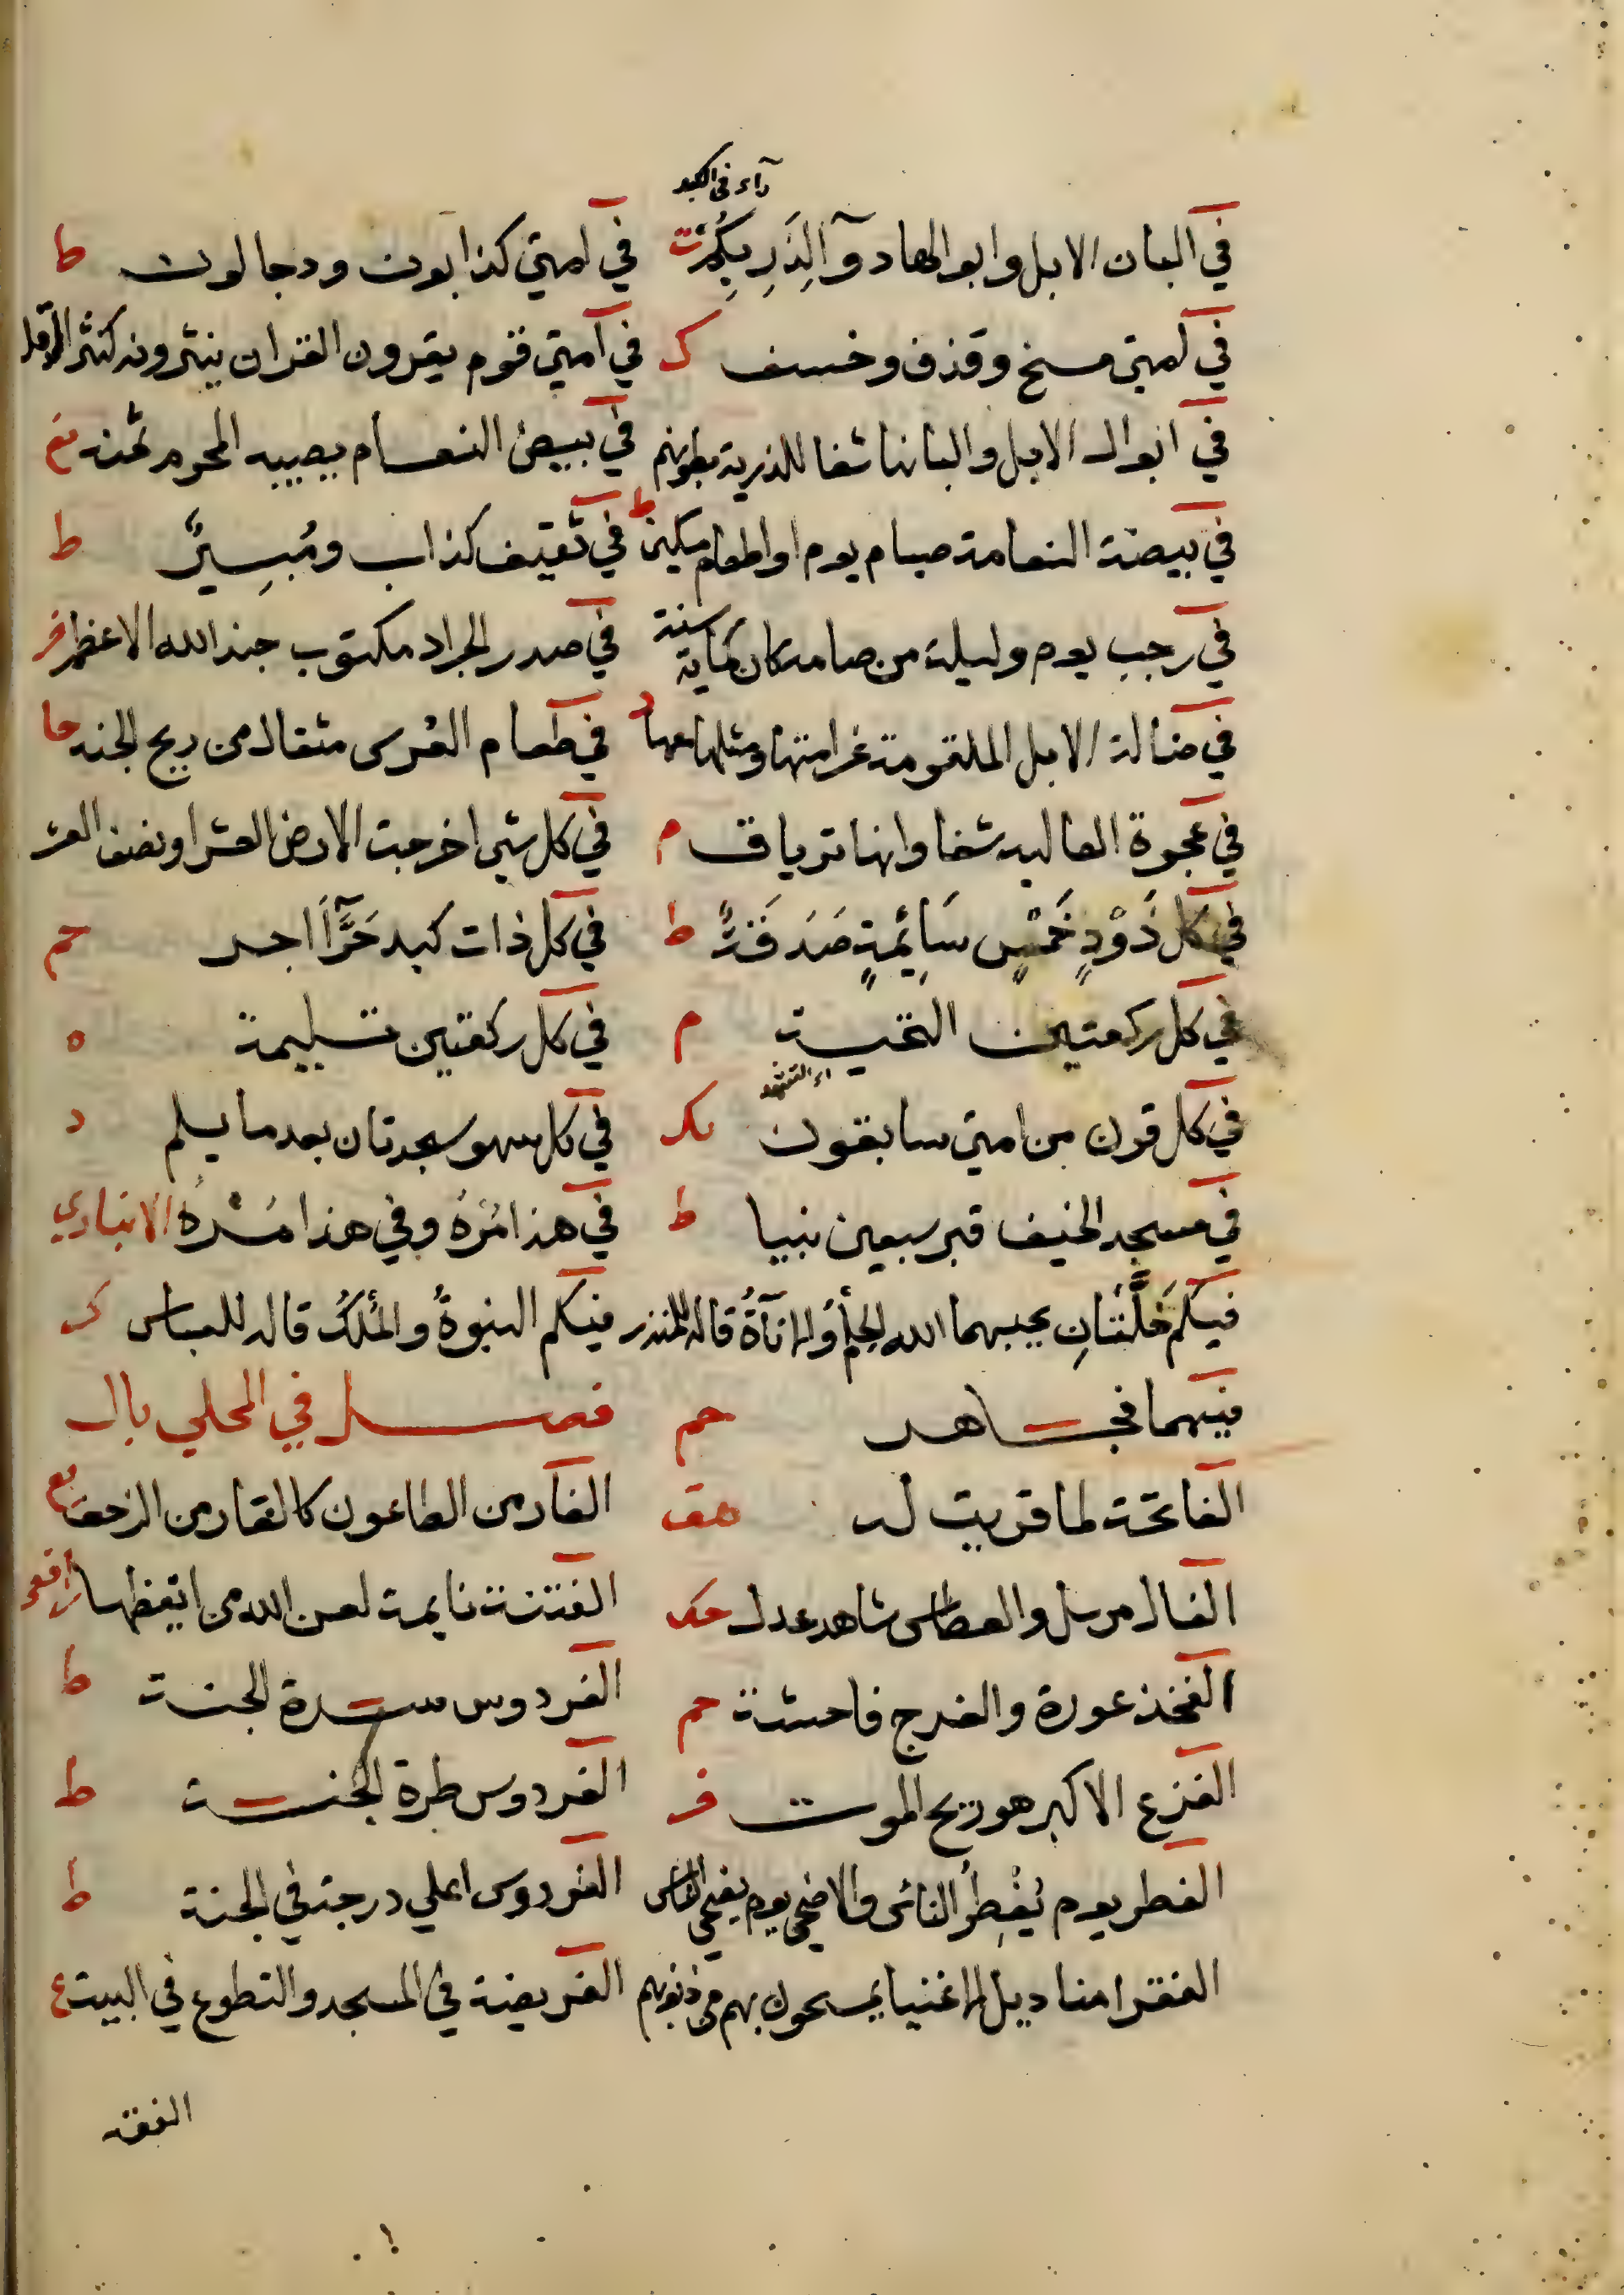 داء في الكبد
في البان الابل وابوالها دوآ لِذَرِبِكُمْ ت في امتي كذابون ودجالون ط
في امتي مسخ وقذف وخسف ك في امتي قوم يقرون القران ينثرونه كنثر الدقل
في ابوال الابل والبانها شفا للذربة بطونهم في بيض النعام يصيبه المحرم ثمنه
في بيضة النعامة صيام يوم او اطعام مسكين ط في ثقيف كذاب ومُبِيرٌ ط
في رجب يوم وليلة من صامه كان كماية سنة في صدر الجراد مكتوب جند الله الاعظم
في ضالة الابل الملقومة غرامتها ومثلها معها د في طعام العرس مثقال من ريح الجنه حا
في عجوة العاليه شفا وانها ترياق م في كل شي اخرجت الارض العشر او نصف العشر
في كل ذَوْدٍ خَمْسٍ سَايِمَةٍ صَدَقَةٌ ط في كل ذات كبد حَرَّآ اجر حم
في كل ركعتين التحيــة م في كل ركعتين تسليمة ه
اي التشهد
في كل قرن من امتي سابقون في كل سهو سجدتان بعد ما يسلم د
في مسجد الخيف قبر سبعين نبيا ط في هذا مَرَّةً وفي هذا مَــرَّةً الانباري
فيكم خَلَّتانِ يحبهما الله الحِلمُ والانآةُ قاله للمنذر فيكم النبوةُ والمُلْكُ قاله للعباس ك
فيهما فجــاهد حم فصـــل في المحلي بال
الفاتحة لما قريت له هق الفار من الطاعون كالفار من الزحف
الفال مرسل والعطاس شاهد عدل حك الفتنة نايمة لعن الله من ايقظها رافعي
الفخذ عورة والفرج فاحشة حم الفردوس ســرة الجنة ط
الفزع الاكبر هو ريح الموت فر الفردوس طرة الجنــة ط
الفطر يوم يُفْطِرُ الناس والاضحي يوم يضحي الناس الفردوس اعلي درجة في الجنة ط
الفقرا مناديل الاغنيا يمسحون بهم من ذنوبهم الفريضة في المسجد والتطوع في البيت ع
الفقه